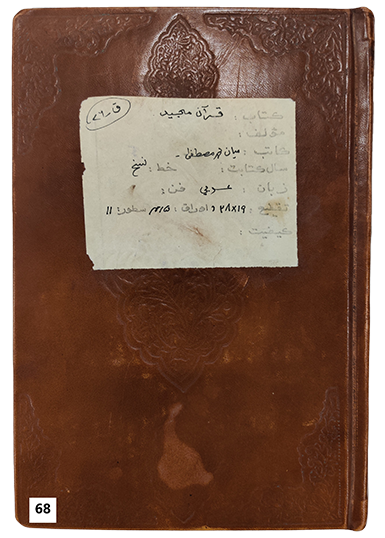 ق ر ۲۶
کتاب : قرآن مجید
مؤلف :
کاتب : میاں محمد مصطفیٰ -
سال کتابت : خط : نسخ
زبان : عربی فن :
تقطیع : ۲۸x۱۹ اوراق : ۴۱۵ سطور : ۱۱
کیفیت :
68